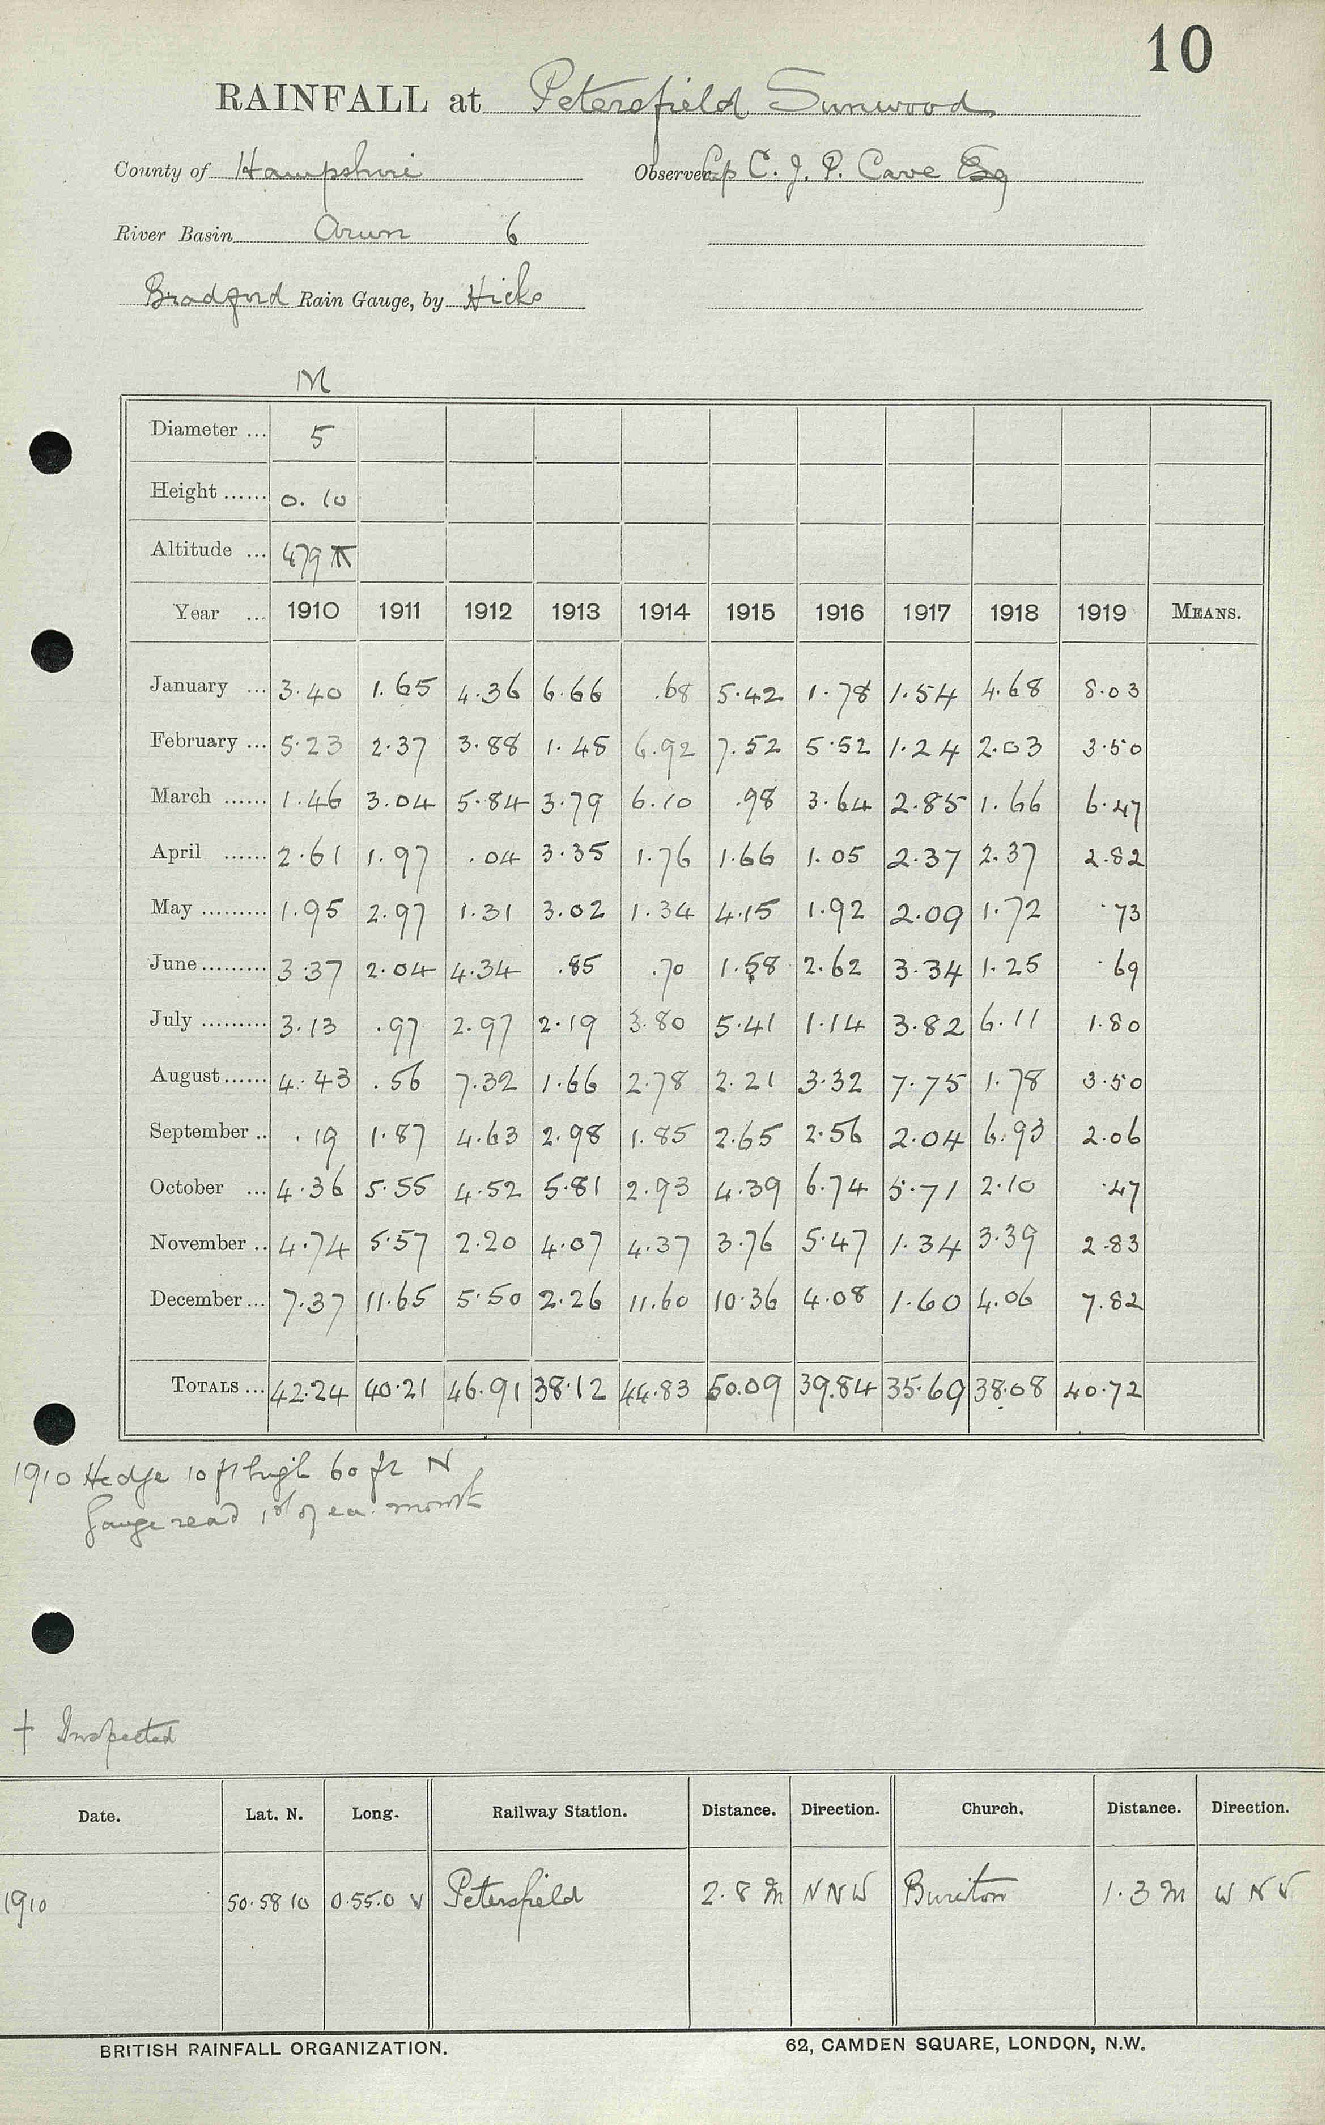 10
RAINFALL at Petersfield Sunwood
County of Hampshire Observer Cp C. J. P. Cave Esq
River Basin Arun 6
Bradford Rain Gauge, by Hicks
M
Diameter ... 5
Height ...... 0.10
Altitude ... 479
Year ... 1910 1911 1912 1913 1914 1915 1916 1917 1918 1919 MEANS.
January ... 3.40 1.65 4.36 6.66 .68 5.42 1.78 1.54 4.68 8.03
February ... 5.23 2.37 3.88 1.48 6.92 7.52 5.52 1.24 2.03 3.50
March ...... 1.46 3.04 5.84 3.79 6.10 .98 3.64 2.85 1.66 6.47
April ...... 2.61 1.97 .04 3.35 1.76 1.66 1.05 2.37 2.37 2.82
May ......... 1.95 2.97 1.31 3.02 1.34 4.15 1.92 2.09 1.72 .73
June ......... 3.37 2.04 4.34 .85 .70 1.58 2.62 3.34 1.25 .69
July ......... 3.13 .97 2.97 2.19 3.80 5.41 1.14 3.82 6.11 1.80
August ...... 4.43 .56 7.32 1.66 2.78 2.21 3.32 7.75 1.78 3.50
September .. .19 1.87 4.63 2.98 1.85 2.65 2.56 2.04 6.93 2.06
October ... 4.36 5.55 4.52 5.81 2.93 4.39 6.74 5.71 2.10 .47
November .. 4.74 5.57 2.20 4.07 4.37 3.76 5.47 1.34 3.39 2.83
December ... 7.37 11.65 5.50 2.26 11.60 10.36 4.08 1.60 4.06 7.82
TOTALS ... 42.24 40.21 46.91 38.12 44.83 50.09 39.84 35.69 38.08 40.72
1910 Hedge 10 ft high 60 ft N
Gauge read 1st of ea. month
† Inspected
Date. Lat. N. Long. Railway Station. Distance. Direction. Church. Distance. Direction.
1910 50.58 10 0.55.0 W Petersfield 2.8 m NNW Buriton 1.3 m WNW
BRITISH RAINFALL ORGANIZATION. 62, CAMDEN SQUARE, LONDON, N.W.